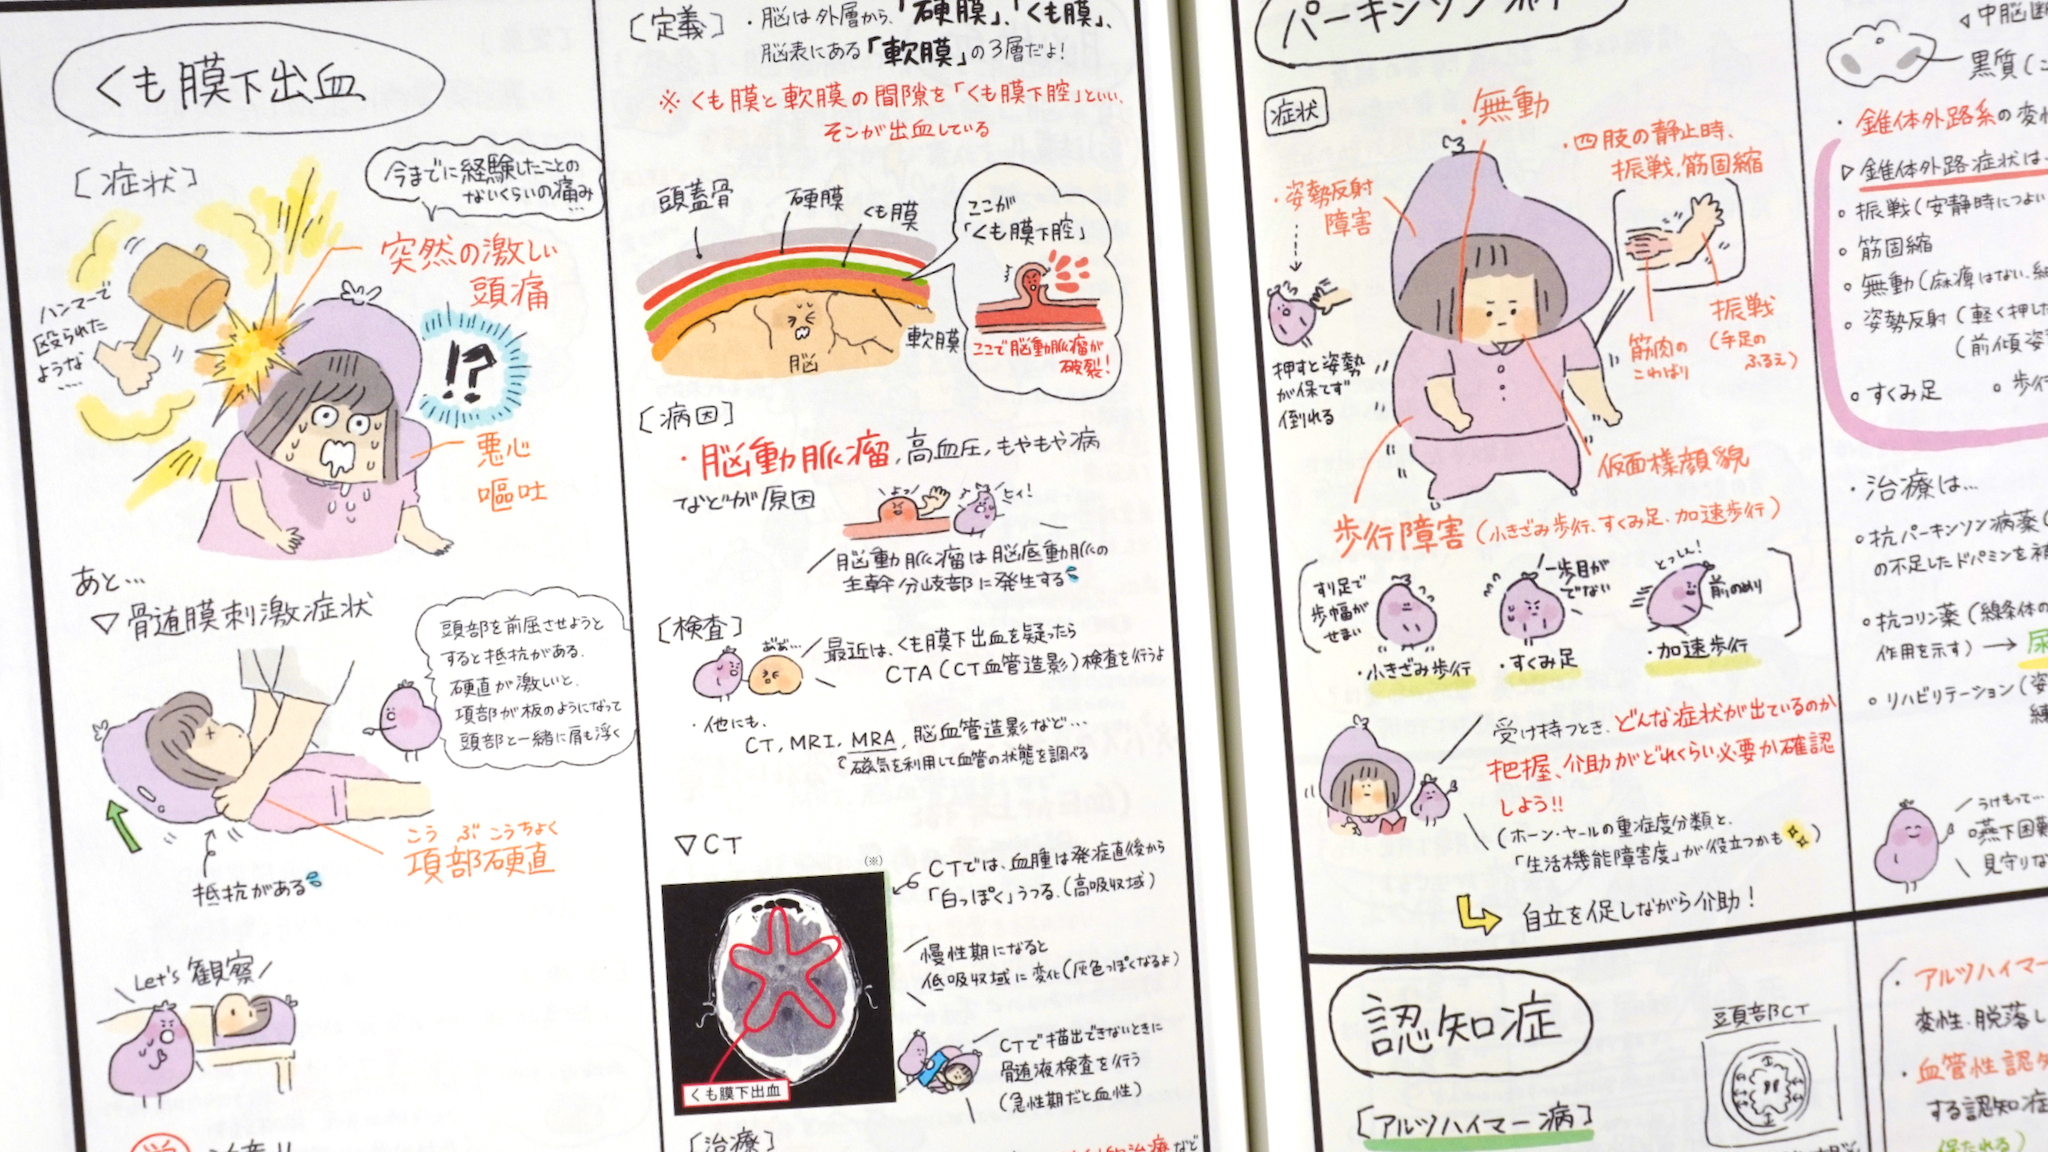 くも膜下出血
[症状]
今までに経験したことの
ないくらいの痛み…
突然の激しい
頭痛
ハンマーで
殴られた
ような
....
!?
悪心
嘔吐
あと…
▽骨随膜刺激症状
頭部を前屈させようと
すると抵抗がある.
硬直が激しいと、
項部が板のようになって
頭部と一緒に肩も浮く
こうぶこうちょく
項部硬直
抵抗がある
Let's 観察
[定義]
・脳は外層から、「硬膜」、「くも膜」、
脳表にある「軟膜」の3層だよ!
※くも膜と軟膜の間隙を「くも膜下腔」といい、
そこが出血している
頭蓋骨
硬膜
くも膜
軟膜
脳
ここが
「くも膜下腔」
ここで脳動脈瘤が
破裂!
[病因]
・脳動脈瘤,高血圧,もやもや病
などが原因
よっ
ヒィ!
脳動脈瘤は脳底動脈の
主幹分岐部に発生する
[検査]
最近は、くも膜下出血を疑ったら
CTA(CT血管造影)検査を行うよ
・他にも、
CT,MRI,MRA,脳血管造影など…
磁気を利用して血管の状態を調べる
▽CT
(※)
CTでは、血腫は発症直後から
「白っぽく」うつる.(高吸収域)
慢性期になると
低吸収域に変化(灰色っぽくなるよ)
CTで描出できないときに
骨随液検査を行う
(急性期だと血性)
くも膜下出血
[治療]
治療など
パーキンソン病
症状
・無動
・四肢の静止時、
振戦,筋固縮
・姿勢反射
障害
押すと姿勢
が保てず
倒れる
筋肉の
こわばり
振戦
(手足の
ふるえ)
仮面様顔貌
歩行障害(小きざみ歩行、すくみ足、加速歩行)
すり足で
歩幅が
せまい
一歩目が
でない
とっしん!
前のめり
・小きざみ歩行
・すくみ足
・加速歩行
受け持つとき、どんな症状が出ているのか
把握、介助がどれくらい必要か確認
しよう!!
(ホーン・ヤールの重症度分類と、
「生活機能障害度」が役立つかも)
自立を促しながら介助!
中脳断
黒質(
・錐体外路系の変性
▷錐体外路症状は
○振戦(安静時につよい
○筋固縮
○無動(麻痺はない、
○姿勢反射(軽く押した
(前傾姿
○すくみ足
○歩行
・治療は…
○抗パーキンソン病薬(
の不足したドパミンを補
○抗コリン薬(線条体の
作用を示す)→尿
○リハビリテーション(姿
うけもって…
嚥下困難
見守りな
認知症
[アルツハイマー病]
頭部CT
・アルツハイマー
変性、脱落し
・血管性認知
する認知症
保たれる)